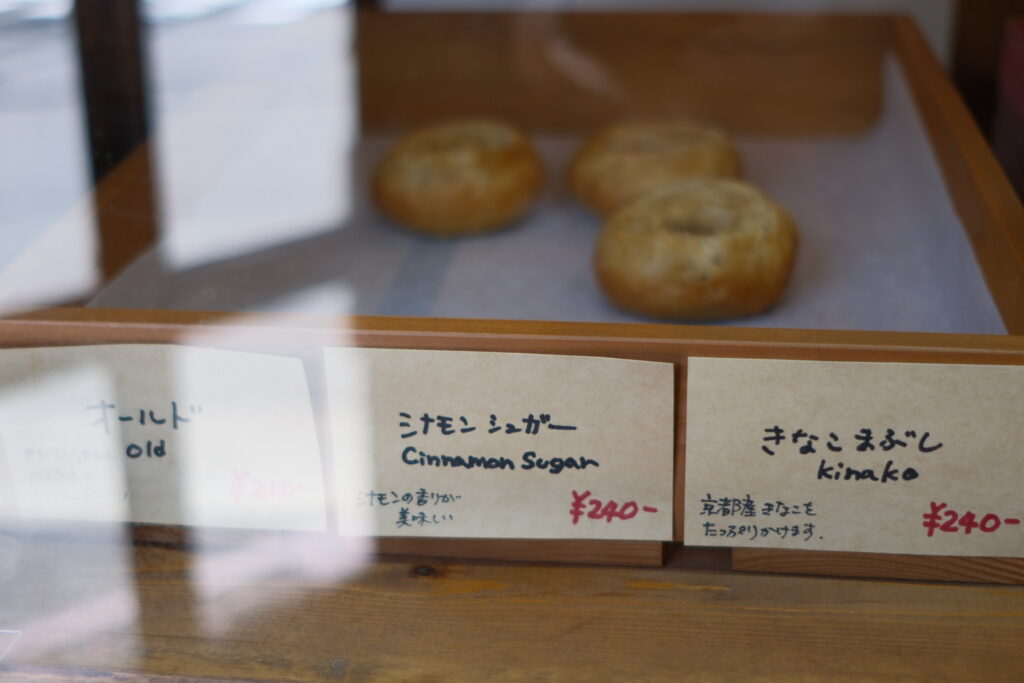 オールド
old
¥210-
シナモンシュガー
Cinnamon Sugar
シナモンの香りが
美味しい
¥240-
きなこまぶし
kinako
京都産きなこを
たっぷりかけます.
¥240-